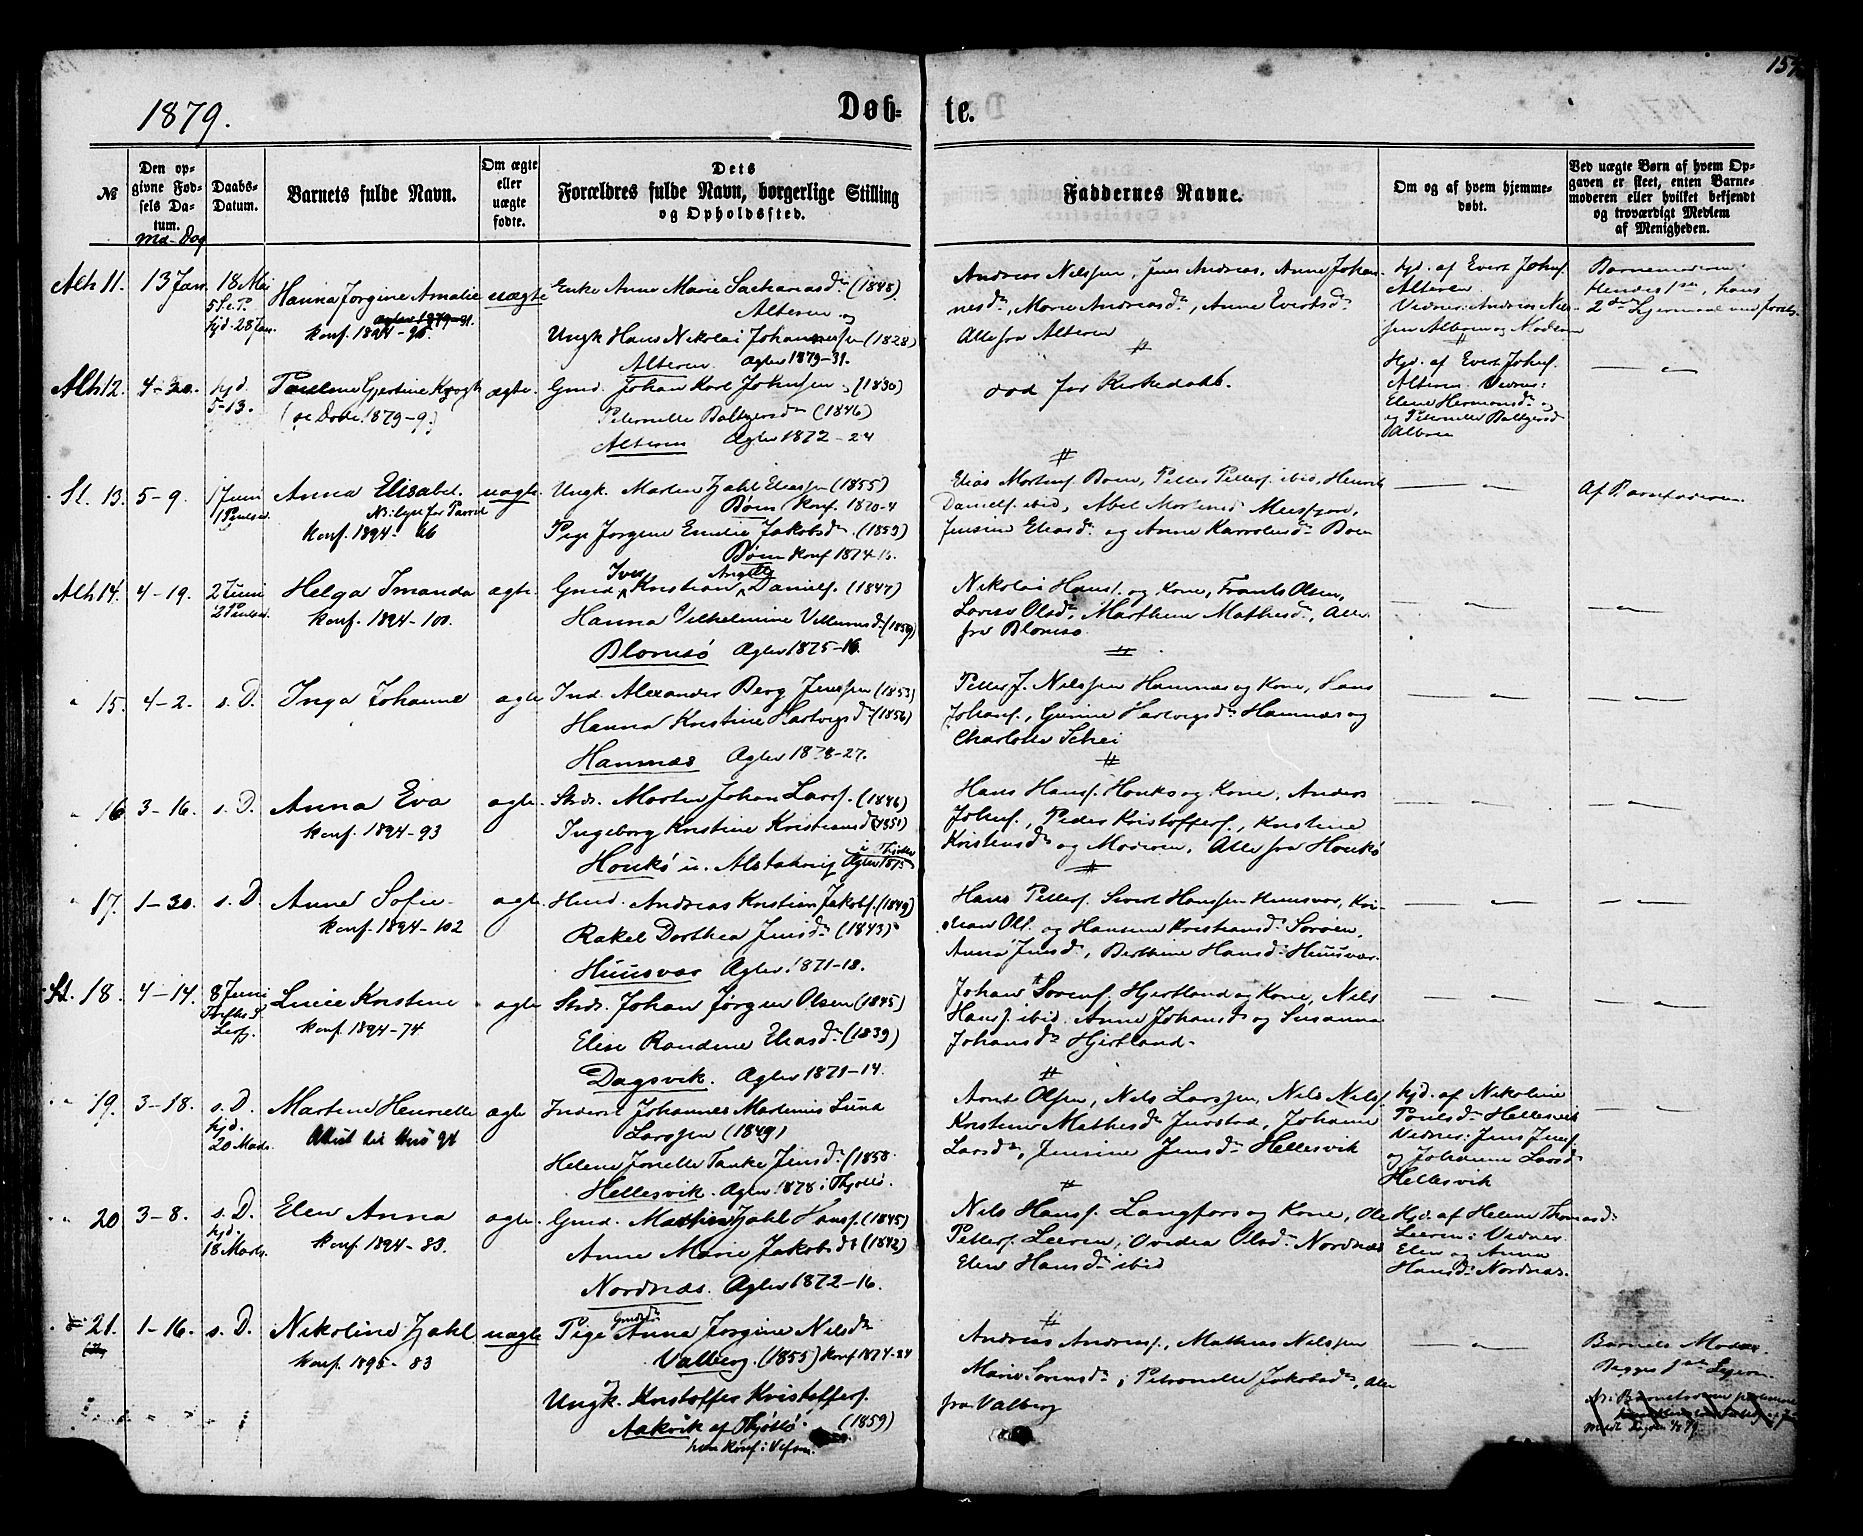 157
1879.
Døb-
te.
№
Den op-
givne Fød-
sels Da-
tum.
Md - Dag
Daabs-
Datum.
Barnets fulde Navn.
Om ægte
eller
uægte
fødte.
Dets
Forældres fulde Navn, borgerlige Stilling
og Opholdssted.
Faddernes Navne.
Om og af hvem hjemme-
døbt.
Ved uægte Børn af hvem Op-
gaven er skeet, enten Barne-
moderen eller hvilket bekjendt
og troværdigt Medlem
af Menigheden.
Alh 11.
13 Jan
18 Mai
5 S. e. P.
hjd. 28 Jan.
Hanna Jørgine Amalie
konf. 1894-96.
uægte
Enke Anne Marie Sachariasdr (1848)
Alteren og
Ungk Hans Nikolai Johannessen (1828)
Alteren Ægtev 1879-31.
Andreas Nilssen, Jens Andreas. Anne Johan-
nesdr, Marie Andreasdr, Anne Evertsdr
Alle fra Alteren
hjd. af Evert Johns.
Alteren.
Vidner: Andreas Nils-
sen Alteren og Moderen
Barnemoderen.
Hendes 1ste, hans
2den Leiermaal
Alh 12.
4-20.
hjd.
5-13.
Pauline Gjertine Krogh
(se Døbte 1879-9.)
ægte.
Gmd. Johan Karl Johnsen (1830)
Petternelle Baltzersdr (1846)
Alteren Ægtev 1872-24
død før Kirkedaab.
Hjd. af Evert Johns.
Alteren. Vidner:
Elene Hermansdr og
Petternelle Baltzersdr
Alteren
St. 13.
5-9.
1 Juni
1 Pintsed.
Anna Elisabet.
konf. 1894- 66
uægte.
Ungk. Martin Zahl Eliassen (1855)
Bøen konf. 1870-4
Pige Jørgine Emilie Jakobsdr (1859)
Bøen konf 1874-15.
Elias Mortens. Bøen, Petter Petters. ibid, Henrik
Daniels. ibid, Abel Mortensd Meisfjorn,
Jensine Eliasdr og Anne Karrolusdr Bøen
Af Barnefaderen.
Alh 14.
4-19.
2 Juni
2 Pintsed.
Helga Imanda
konf. 1894-100.
ægte.
Gmd Iver Kristian Angell Daniels. (1847)
Hanna Vilhelmine Villumsdr (1859)
Blomsø Ægtev 1875-16.
Nikolai Hans. og Kone, Frants Olsen,
Lovise Olsdr, Marthine Mathisdr, Alle
fra Blomsø
" 15.
4-2.
s. D.
Inga Johanne
ægte
Ind. Alexander Berg Jenssen (1853)
Hanna Kristine Hartvigsdr (1856)
Hamnæs Ægtev 1878-27.
Petter J. Nilssen Hamnæs og Kone, Hans
Johans., Gurine Hartvigsdr Hamnæs og
Charlotte Schei
" 16
3-16.
s. D.
Anna Eva
konf. 1894-93
ægte.
Strds. Martin Johan Larss. (1846)
Ingeborg Kristine Kristiansdr (1851)
Houkø u. Alstahoug Ægtev 1875
Hans Hans. Houkø og Kone, Anders
Johns., Peder Kristoffers., Kristine
Kristensdr og Moderen, Alle fra Houkø
" 17.
1-30.
s. D.
Anne Sofie
konf. 1894-102
ægte.
Hmd. Andreas Kristian Jakobs. (1849)
Rakel Dorthea Jensdr (1843)
Huusvær Ægtev 1871-18.
Hans Petters. Sivert Hanssen Huusvær, Kri-
stian Ols. og Hansine Kristiansdr Sørøen,
Anna Jensdr, Berthine Hansdr Huusvær.
St. 18.
4-14.
8 Juni
Lucie Kristine
konf. 1894-74
ægte
Strds. Johan Jørgen Olsen (1845)
Elise Randine Eliasdr (1839)
Dagsvik. Ægtev 1871-14.
Johan Sørens. Hjertland og Kone, Nils
Hans. ibid. Anne Johansdr og Susanna
Johansdr Hjertland.
" 19.
3-18.
s. D.
hjd.
20 Marts.
Martine Henriette
ægte
Inderst Johannes Martinus Lund
Larssen (1849)
Helene Jonette Tanke Jensdr (1858
Hellesvik. Ægtev. 1878 i Thjøttø.
Arnt Olsen, Nils Larssen, Nils Nils.
Kristine Mathisdr, Johanne
Larsdr, Jensine Jensdr Hellesvik
hjd. af Nikoline
Poulsdr Hellesvik
Vidner: Jens Jens.
og Johanne Larsdr
Hellesvik
" 20.
3-8.
s. D.
hjd.
18 Marts.
Elen Anna
konf. 1894-83.
ægte.
Gmd. Martin Zahl Hans. (1845)
Anne Marie Jakobsdr (1842)
Nordnæs. Ægtev 1872-16.
Nils Hans. Langfors og Kone, Ole
Petters. Leeren, Ovidia Olsdr Nordnæs
Elen Hansdr ibid
Hjd. af Helene Thomasdr
Leeren: Vidner.
Elen og Anna
Hansdr Nordnæs.
21.
1-16.
s. D.
Nikoline Zahl
konf. 1895-83
uægte
Pige Anna Jørgine Nilsdr
Valberg. (1855) konf 1874-24
Ungk. Kristoffer Kristoffers.
Aakvik af Thjøttø. (1859)
han konf. i Vefsen.
Andreas Andreas., Mathias Nilssen
Marie Sørensdr, Petronelle Jakobsdr, Alle
fra Valberg
Barnets Moder.
Begges 1ste Leierm.